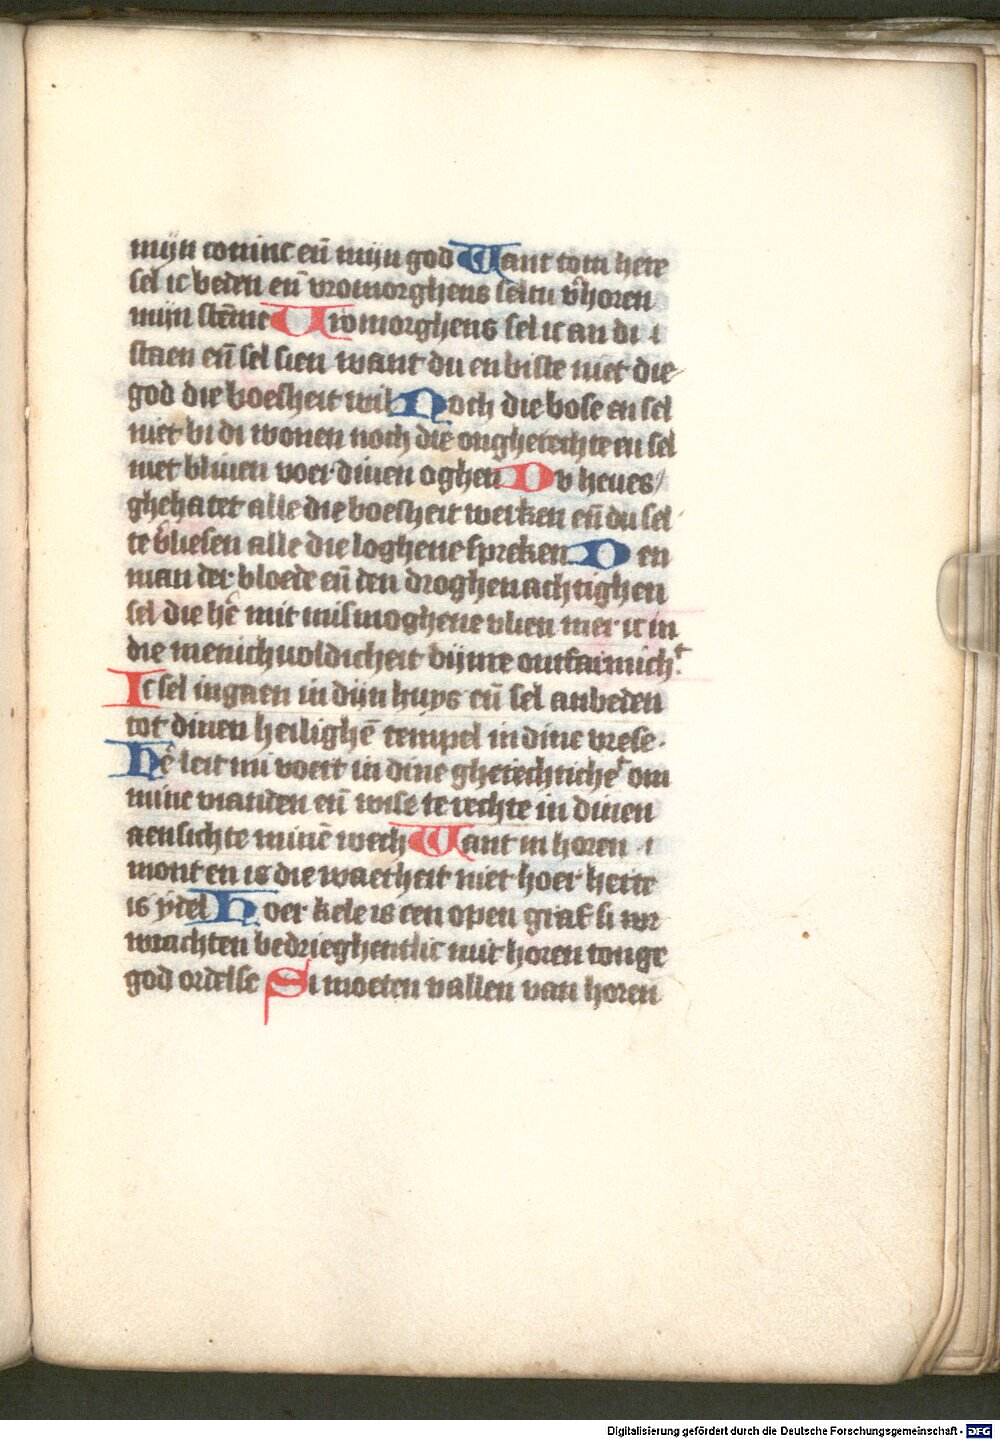 mijn coninc eñ mijn god Want tot di here
sel ic beden eñ vromorghens seltu v̄horen
mijn stēme Uromorghens sel ic an di
staen eñ sel sien want du en biste niet die
god die boesheit wil Noch die bose en sel
niet bi di wonen noch die ongherechte en sel
niet bliuen voer dinen oghen Du heues
ghehatet alle die boesheit werken eñ du sel
te v̄liesen alle die loghene spreken Den
man der bloede eñ den droghenachtighen
sel die hē mit mismoghene vlien mer ic in
die menichuoldicheit dijnre ontfarmich
Ic sel ingaen in dijn huys eñ sel anbeden
tot dinen heilighē tempel in dine vrese
Hē leit mi voert in dine gherechtiche om
mine vianden eñ wise te rechte in dinen
aensichte minē wech Want in horen
mont en is die waerheit niet hoer herte
is ydel Hoer kele is een open graf si
wrachten bedrieghentlic mit horen tonge
god ordelse Si moeten vallen van horen
Digitalisierung gefördert durch die Deutsche Forschungsgemeinschaft - DFG